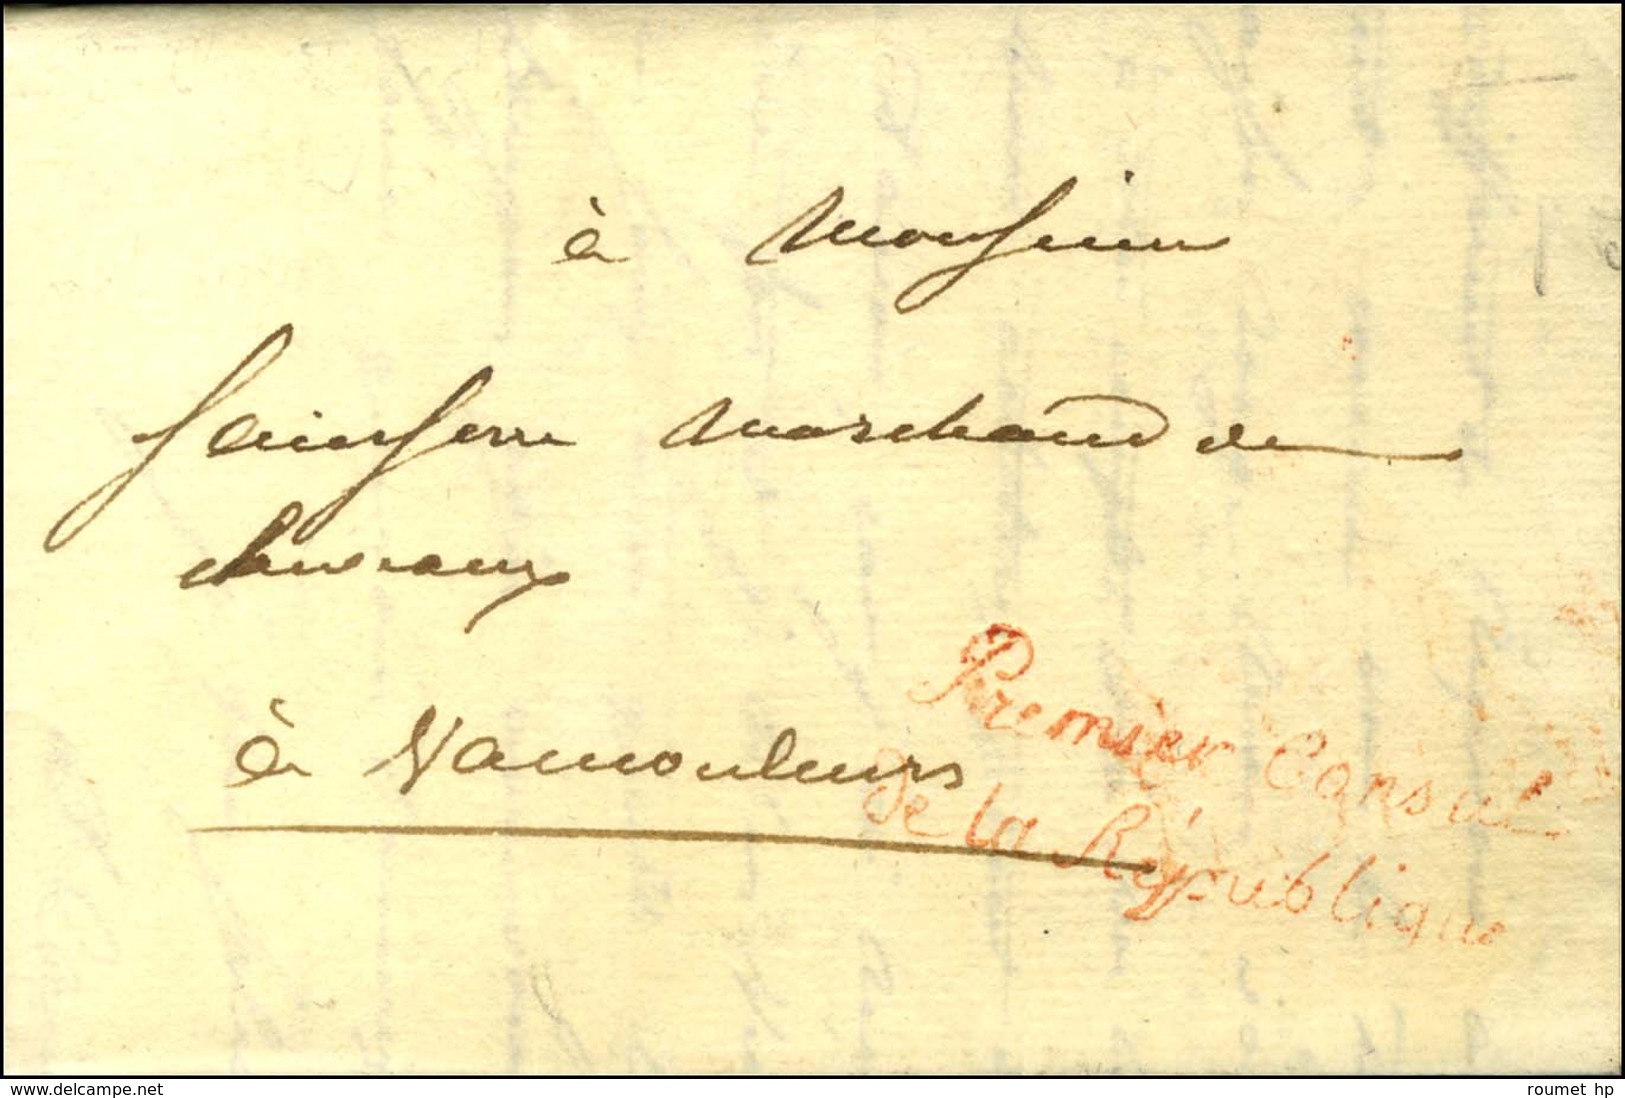 à Monsieur
marchand de
chevaux
à Vaucouleurs
Premier Consul
de la République
www.delcampe.net
roumet hp